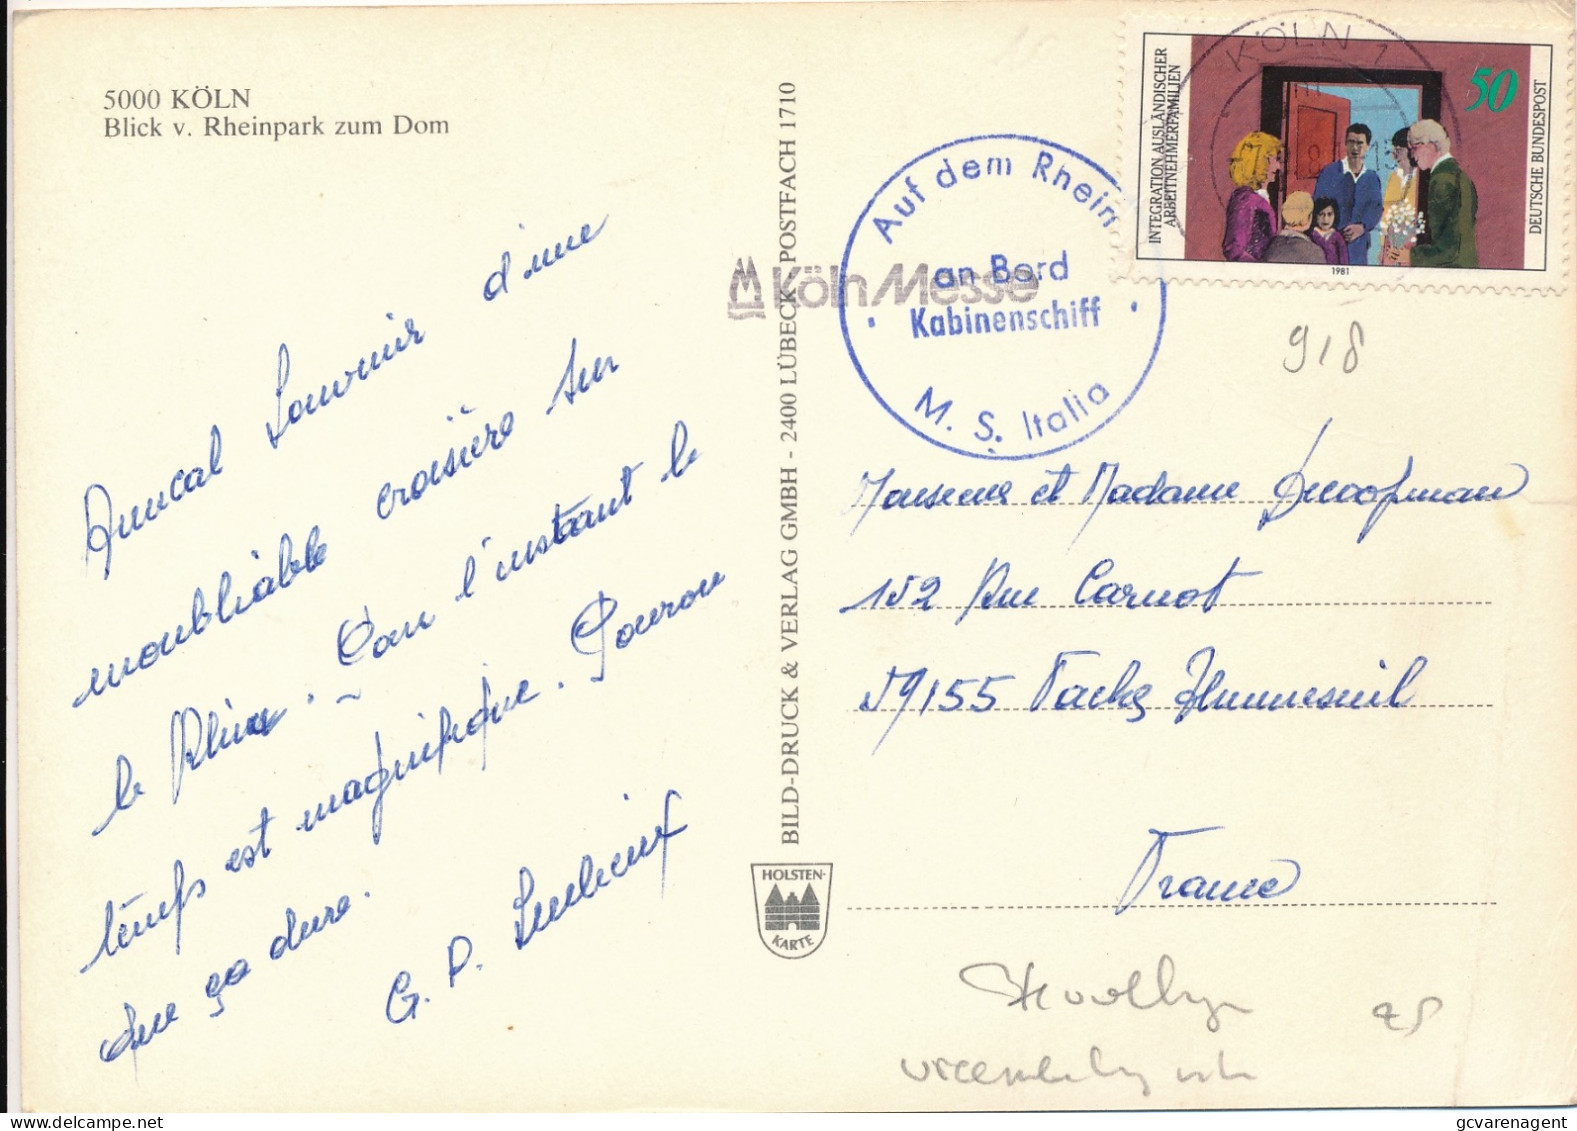 5000 KÖLN
Blick v. Rheinpark zum Dom
Amical Souvenir d'une
inoubliable croisière sur
le Rhin. Pour l'instant le
temps est magnifique. Pourvu
que ça dure.
G. P.
BILD-DRUCK & VERLAG GMBH - 2400 LÜBECK - POSTFACH 1710
HOLSTEN-
KARTE
KölnMesse
Auf dem Rhein
an Bord
Kabinenschiff
M. S. Italia
KÖLN 1
INTEGRATION AUSLÄNDISCHER
ARBEITNEHMERFAMILIEN
50
DEUTSCHE BUNDESPOST
1981
918
Monsieur et Madame
152 Rue Carnot
59155 Faches Thumesnil
France
gcvarenagent